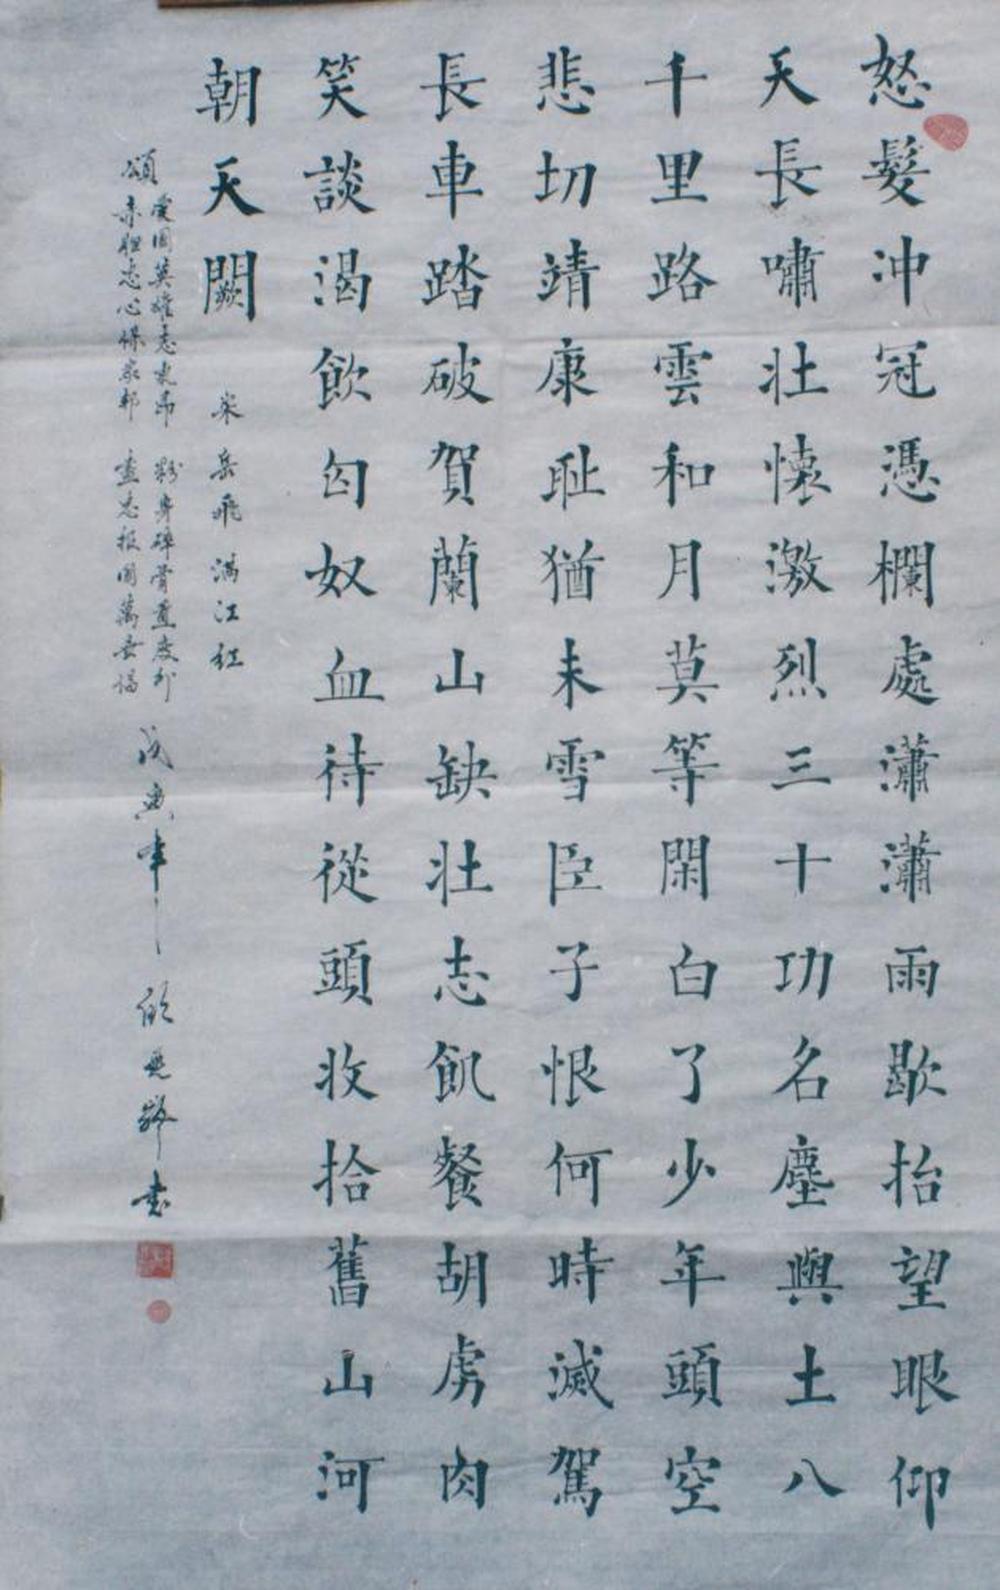 怒髮冲冠憑欄處瀟瀟雨歇抬望眼仰
天長嘯壯懐激烈三十功名塵與土八
千里路雲和月莫等閑白了少年頭空
悲切靖康耻猶未雪臣子恨何時滅駕
長車踏破賀蘭山缺壯志飢餐胡虜肉
笑談渴飲匈奴血待從頭收拾舊山河
朝天闕
宋岳飛滿江紅
頌
愛國英雄志東昂 粉身碎骨置度外
赤胆忠心保家邦 盡忠報國萬古揚
戊寅年
書